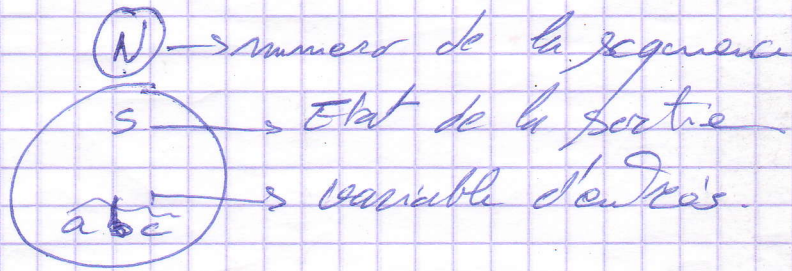 N → numero de la sequence
S → Etat de la sortie
a b c → variable d'entrées.